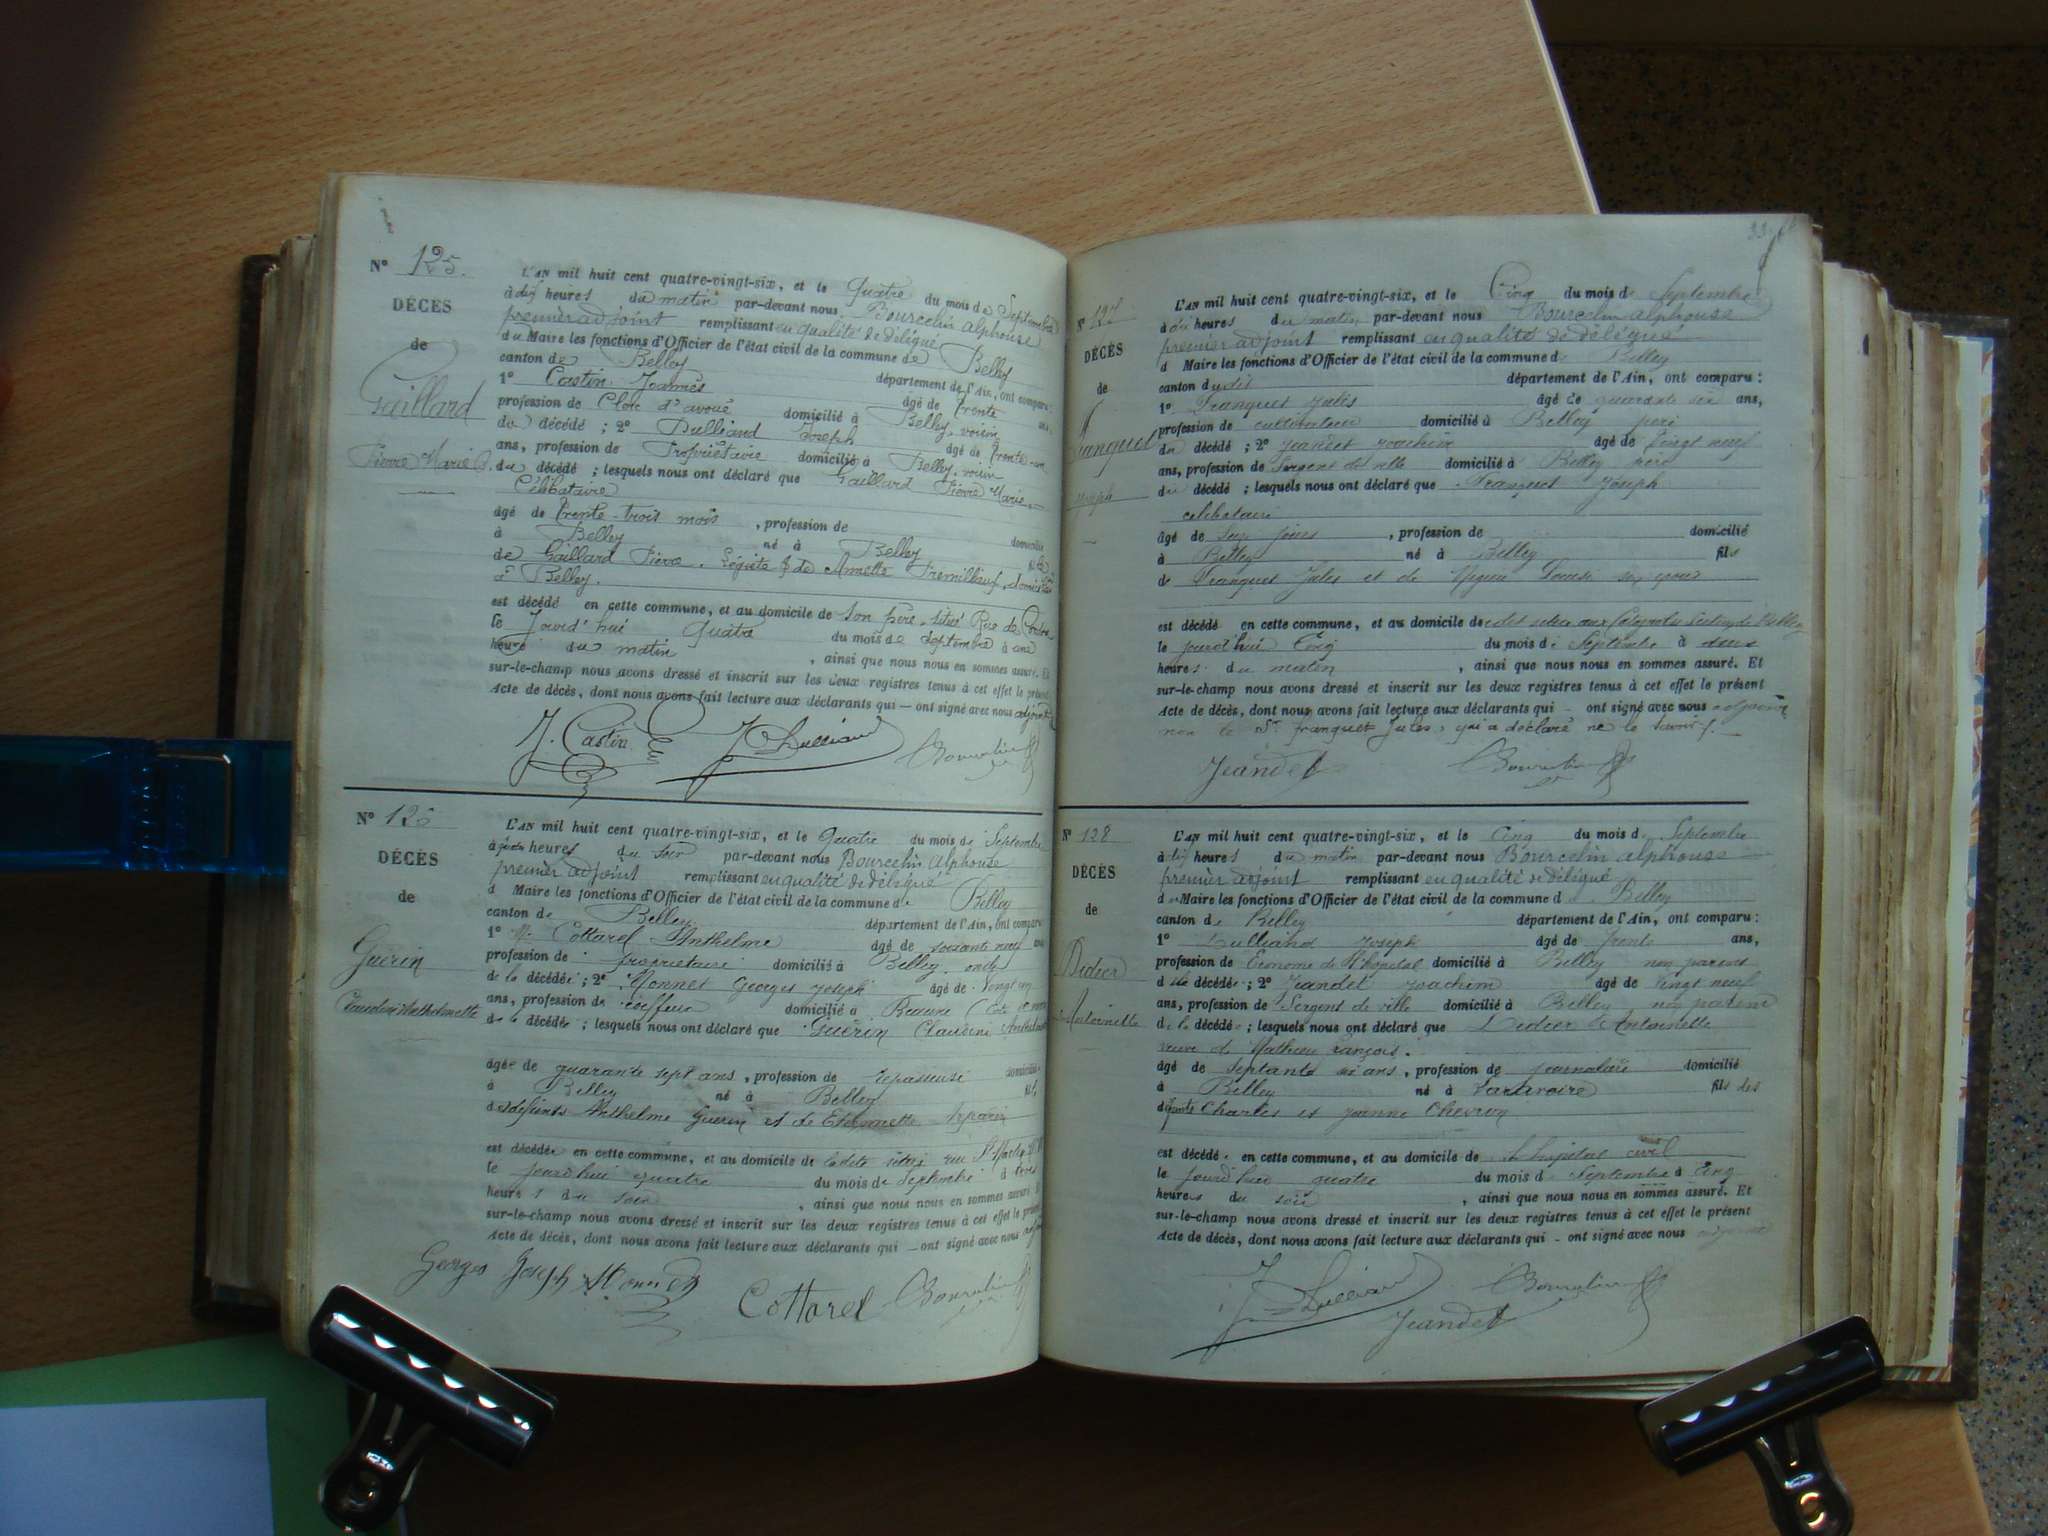 N° 125.
DÉCÈS
de
Gaillard
Pierre Marie
L'AN mil huit cent quatre-vingt-six, et le Quatre du mois de Septembre
à dix heures du matin par-devant nous Bourcelin Alphonse
premier adjoint remplissant en qualité de délégué
du Maire les fonctions d'Officier de l'état civil de la commune de Belley
canton de Belley département de l'Ain, ont comparu :
1° Castin Joannès âgé de trente ans,
profession de Clerc d'avoué domicilié à Belley, voisin
du décédé ; 2° Dulliand Joseph âgé de trente
ans, profession de Propriétaire domicilié à Belley, voisin
du décédé ; lesquels nous ont déclaré que Gaillard Pierre Marie
Célibataire
âgé de trente-trois mois , profession de domicilié
à Belley né à Belley fils
de Gaillard Pierre, & de Annette domiciliés
à Belley.
est décédé en cette commune, et au domicile de son père, situé Rue de
le Jourd'hui Quatre du mois de Septembre à une
heure du matin , ainsi que nous nous en sommes assuré. Et
sur-le-champ nous avons dressé et inscrit sur les deux registres tenus à cet effet le présent
Acte de décès, dont nous avons fait lecture aux déclarants qui — ont signé avec nous adjoint
J. Castin J. Dulliand Bourcelin
N° 126
DÉCÈS
de
Guérin
Claudine Anthelmette
L'AN mil huit cent quatre-vingt-six, et le Quatre du mois de Septembre
à heures du soir par-devant nous Bourcelin Alphonse
premier adjoint remplissant en qualité de délégué
d Maire les fonctions d'Officier de l'état civil de la commune de Belley
canton de Belley département de l'Ain, ont comparu :
1° M. Cottarel Anthelme âgé de soixante neuf ans
profession de propriétaire domicilié à Belley, oncle
de la décédée ; 2° Monnet Georges Joseph âgé de vingt
ans, profession de coiffeur domicilié à Beaune (Côte
de la décédée ; lesquels nous ont déclaré que Guérin Claudine
âgée de quarante sept ans , profession de repasseuse domicilié
à Belley né à Belley fille
des défunts Anthelme Guérin et de Etiennette
est décédée en cette commune, et au domicile de ladite situé rue St Martin
le jourd'hui quatre du mois de Septembre à trois
heures du soir , ainsi que nous nous en sommes assuré. Et
sur-le-champ nous avons dressé et inscrit sur les deux registres tenus à cet effet le présent
Acte de décès, dont nous avons fait lecture aux déclarants qui — ont signé avec nous
Georges Joseph Monnet Cottarel Bourcelin
N° 127
DÉCÈS
de
Franquet
Joseph
L'AN mil huit cent quatre-vingt-six, et le Cinq du mois de Septembre
à dix heures du matin par-devant nous Bourcelin Alphonse
premier adjoint remplissant en qualité de délégué
d Maire les fonctions d'Officier de l'état civil de la commune de Belley
canton dudit département de l'Ain, ont comparu :
1° Franquet Jules âgé de quarante six ans,
profession de cultivateur domicilié à Belley père
du décédé ; 2° Jeandet Joachim âgé de vingt neuf
ans, profession de Sergent de ville domicilié à Belley
du décédé ; lesquels nous ont déclaré que Franquet Joseph
célibataire
âgé de jours , profession de domicilié
à Belley né à Belley fils
de Franquet Jules et de Louise
est décédé en cette commune, et au domicile de
le jourd'hui Cinq du mois de Septembre à deux
heures du matin , ainsi que nous nous en sommes assuré. Et
sur-le-champ nous avons dressé et inscrit sur les deux registres tenus à cet effet le présent
Acte de décès, dont nous avons fait lecture aux déclarants qui - ont signé avec nous adjoint
non le Sr franquet Jules, qui a déclaré ne le savoir.
Jeandet Bourcelin
N° 128
DÉCÈS
de
Didier
Antoinette
L'AN mil huit cent quatre-vingt-six, et le Cinq du mois de Septembre
à dix heures du matin par-devant nous Bourcelin Alphonse
premier adjoint remplissant en qualité de délégué
du Maire les fonctions d'Officier de l'état civil de la commune de Belley
canton de Belley département de l'Ain, ont comparu :
1° Dulliand Joseph âgé de trente ans,
profession de Econome de l'hôpital domicilié à Belley non parent
de la décédée ; 2° Jeandet Joachim âgé de vingt neuf
ans, profession de Sergent de ville domicilié à Belley non parent
de la décédée ; lesquels nous ont déclaré que Didier Antoinette
veuve de Mathieu François.
âgé de septante six ans , profession de journalière domicilié
à Belley né à fille des
défunts Charles et Jeanne Chevron
est décédée en cette commune, et au domicile de l'hôpital civil
le jourd'hui quatre du mois de Septembre à Cinq
heures du soir , ainsi que nous nous en sommes assuré. Et
sur-le-champ nous avons dressé et inscrit sur les deux registres tenus à cet effet le présent
Acte de décès, dont nous avons fait lecture aux déclarants qui - ont signé avec nous adjoint
J. Dulliand Bourcelin
Jeandet